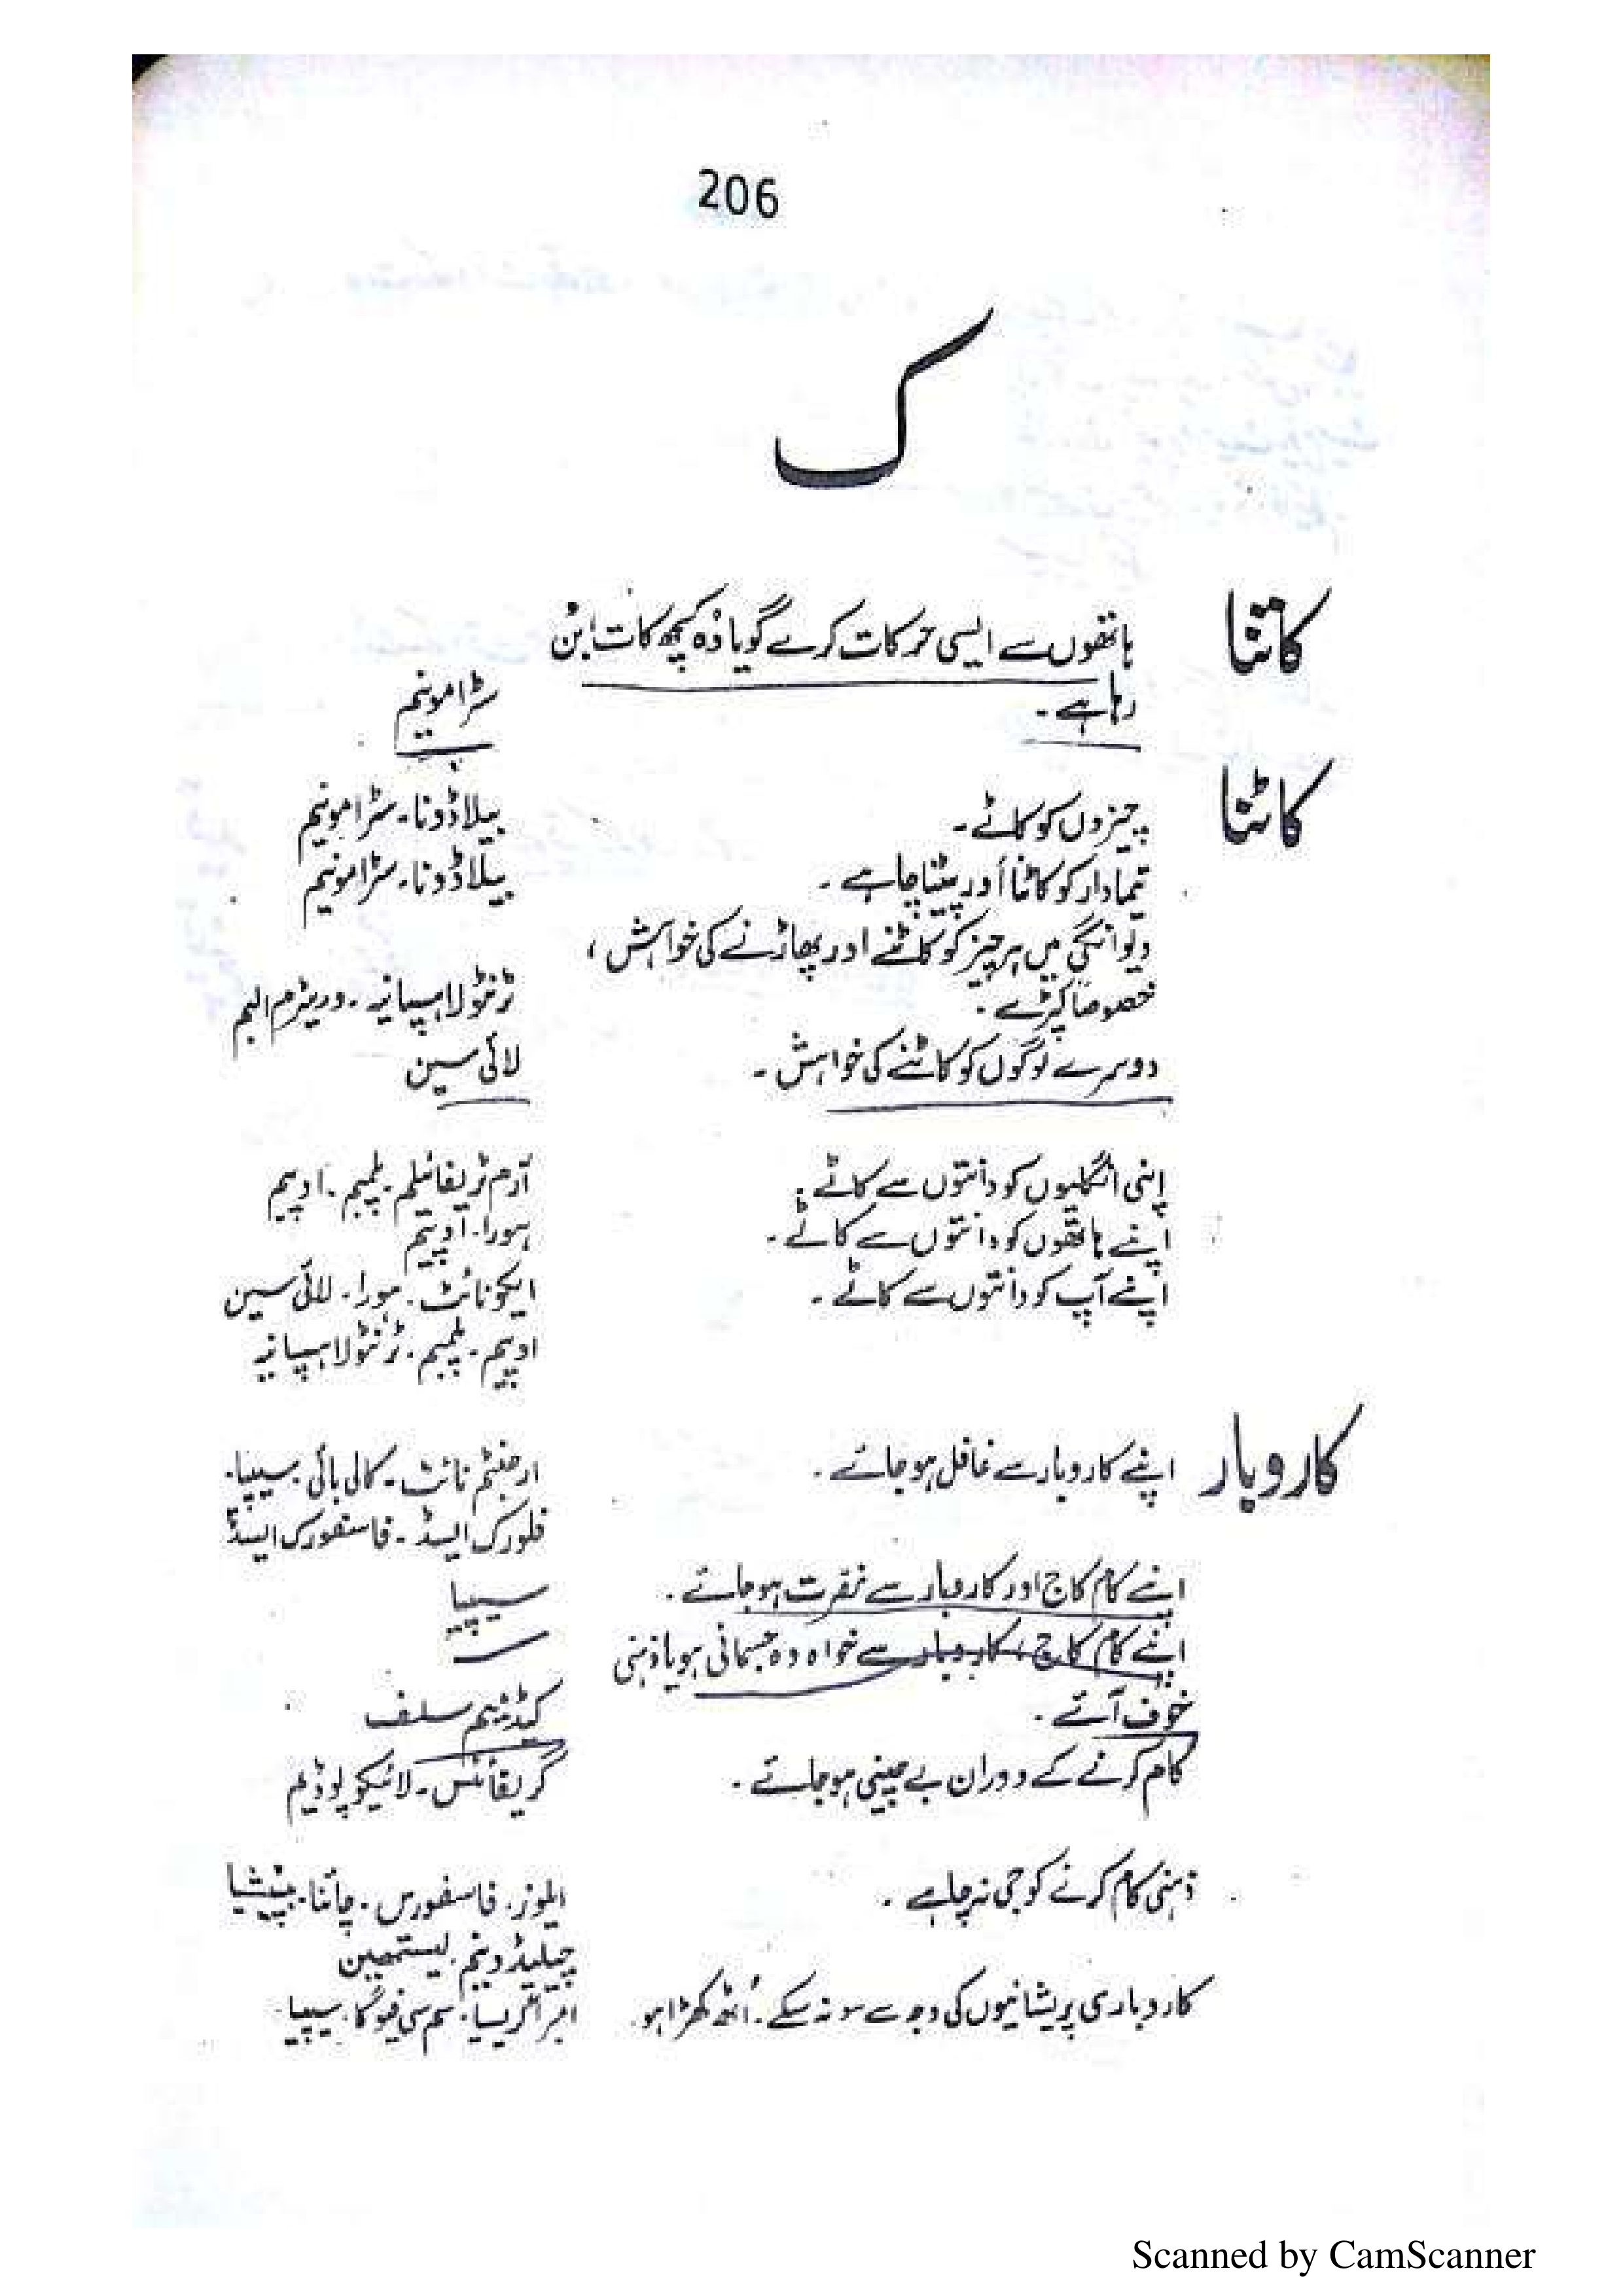 206
ک
کاتنا ہاتھوں سے ایسی حرکات کرے گویا وُہ کچھ کات/بُن
رہا ہے ۔ سٹرامونیم
کاٹنا چیزوں کو کاٹے ۔ بیلاڈونا ۔ سٹرامونیم
تیمادار کو کاٹنا اور پیٹنا چاہے ۔ بیلاڈونا ۔ سٹرامونیم
دیوانگی میں ہر چیز کو کاٹنے اور پھاڑنے کی خواہش ،
خصوصاً کپڑے ۔ ٹرنٹولا ہسپانیہ ۔ وریٹرم البم
دوسرے لوگوں کو کاٹنے کی خواہش ۔ لائی سین
اپنی انگلیوں کو دانتوں سے کاٹے ۔ آرم ٹریفائیلم ۔ پلمبم ۔ اوپیم
اپنے ہاتھوں کو دانتوں سے کاٹے ۔ ہورا ۔ اوپیئم
اپنے آپ کو دانتوں سے کاٹے ۔ ایکونائٹ ۔ ہورا ۔ لائی سین
اوپیم ۔ پلمبم ۔ ٹرنٹولا ہسپانیہ
کاروبار اپنے کاروبار سے غافل ہو جائے ۔ ارجنٹم نائٹ ۔ کالی بائی ۔ سیپیا ۔
فلورک ایسڈ ۔ فاسفورک ایسڈ
اپنے کام کاج اور کاروبار سے نفرت ہو جائے ۔ سیپیا
اپنے کام کاج ، کاروبار سے خواہ وہ جسمانی ہو یا ذہنی
خوف آئے ۔ کیڈمیم سلف
کام کرنے کے دوران بے چینی ہو جائے ۔ گریفائٹس ۔ لائیکوپوڈیم
ذہنی کام کرنے کو جی نہ چاہے ۔ ایلوز ۔ فاسفورس ۔ چائنا ۔ بپٹیشیا
چیلیڈونیم ۔ لیسیتھین
کاروباری پریشانیوں کی وجہ سے سو نہ سکے ۔ اُٹھ کھڑا ہو ۔ امبرا گریسیا ۔ سم سی فیوگا ۔ سیپیا
Scanned by CamScanner